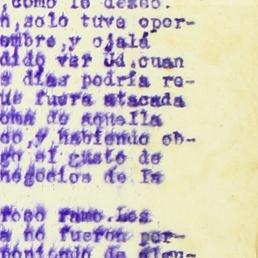 ,como le deseo.
n,solo tuve opor-
embre,y ojalá
dido ver Ud.cuan
s dias podría re-
ue fuera atacada
oma de aquella
co,y habiendo ob-
go el gusto de
negocios de la
roso ramo.Los
s no fueron por-
poniendo de algu-